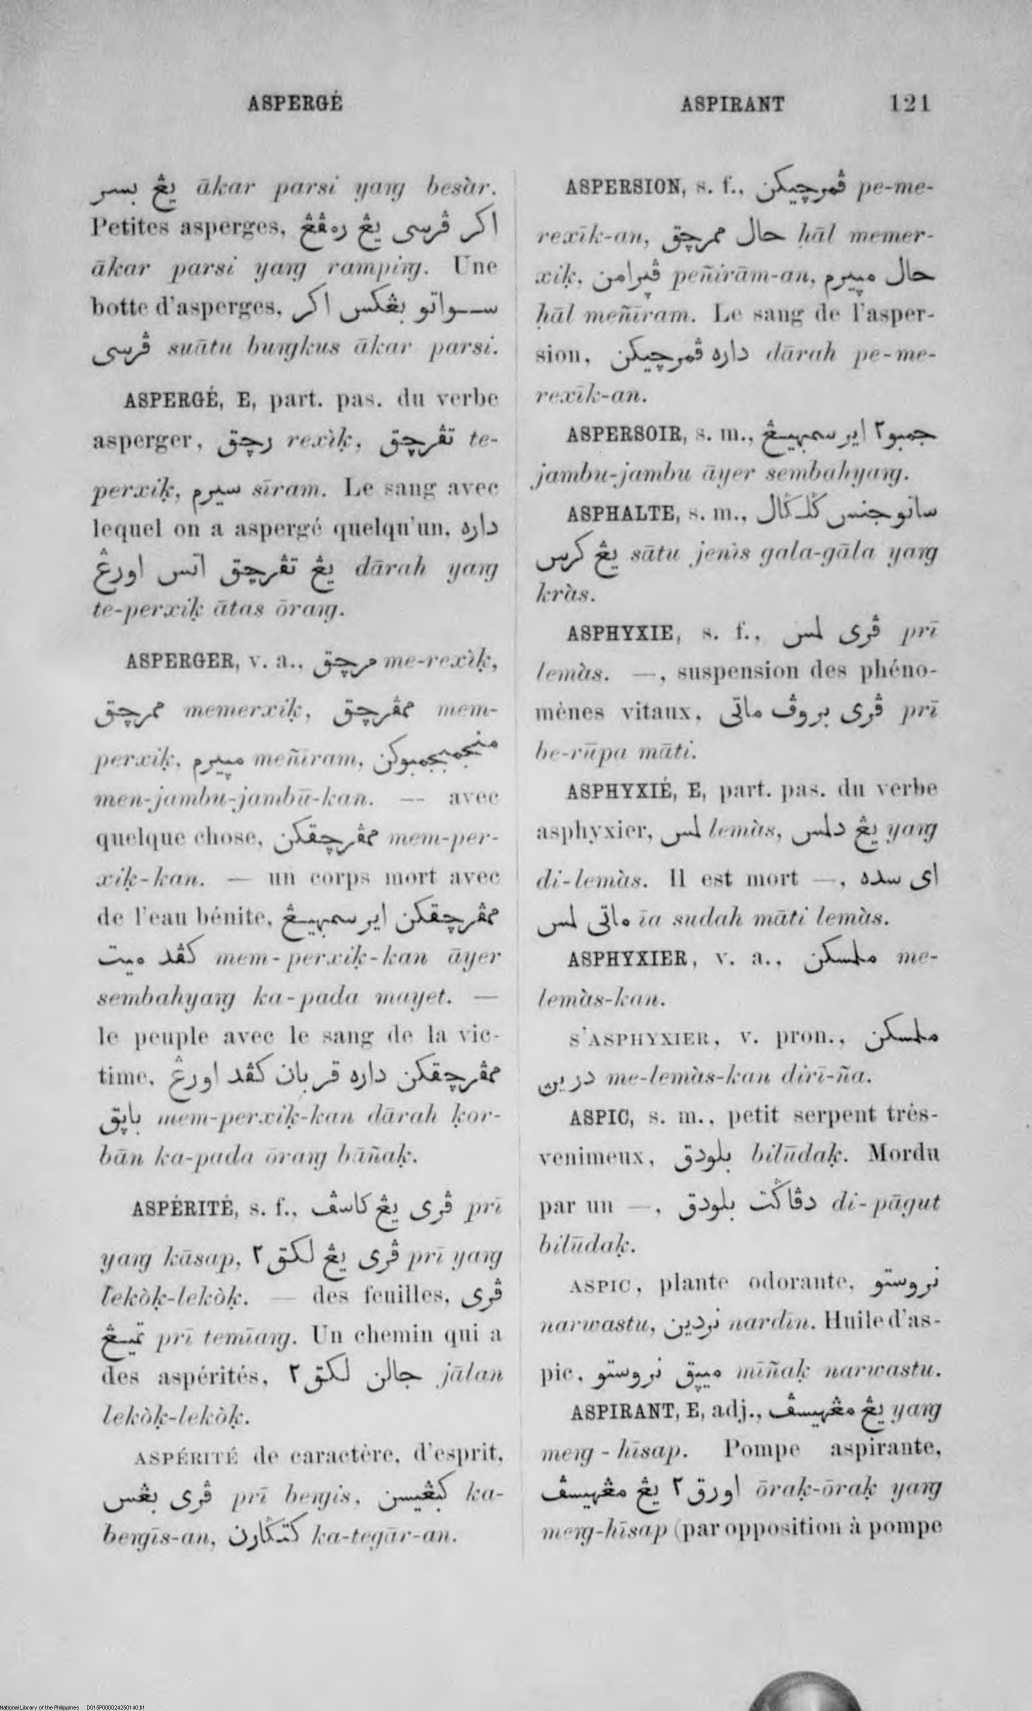 ASPERGÉ
ASPIRANT 121
يڠ بسر ākar parsi yaŋ besàr.
Petites asperges, اکر ڤرسى يڠ رمڤڠ
ākar parsi yaŋ rampiŋ. Une
botte d'asperges, سواتو بڠکس اکر
ڤرسى suātu buŋkus ākar parsi.
ASPERGÉ, E, part. pas. du verbe
asperger, رچق rexìḳ, تڤرچق te-
perxiḳ, سيرم sīram. Le sang avec
lequel on a aspergé quelqu'un, داره
يڠ تڤرچق اتس اورڠ dārah yaŋ
te-perxiḳ ātas ōraŋ.
ASPERGER, v. a., مرچق me-rexìḳ,
ممرچق memerxiḳ, ممڤرچق mem-
perxiḳ, مييرم meñīram, منجمبجمبوکن
men-jambu-jambū-kan. — avec
quelque chose, ممڤرچقکن mem-per-
xiḳ-kan. — un corps mort avec
de l'eau bénite, ممڤرچقکن اير سمبهيڠ
کڤد ميت mem-perxiḳ-kan āyer
sembahyaŋ ka-pada mayet. —
le peuple avec le sang de la vic-
time, ممڤرچقکن داره قربان کڤد اورڠ
باڽق mem-perxiḳ-kan dārah ḳor-
bān ka-pada ōraŋ bāñaḳ.
ASPÉRITÉ, s. f., ڤرى يڠ کاسڤ prī
yaŋ kāsap, ڤرى يڠ لکق٢ prī yaŋ
lekòḳ-lekòḳ. — des feuilles, ڤرى
تميڠ prī temīaŋ. Un chemin qui a
des aspérités, جالن لکق٢ jālan
lekòḳ-lekòḳ.
ASPÉRITÉ de caractère, d'esprit,
ڤرى بڠس prī beŋis, کبڠيسن ka-
beŋīs-an, کتݢارن ka-tegār-an.
ASPERSION, s. f., ڤمرچيکن pe-me-
rexīk-an, حال ممرچق ḥāl memer-
xiḳ, ڤڽيرامن peñirām-an, حال مييرم
ḥāl meñīram. Le sang de l'asper-
sion, داره ڤمرچيکن dārah pe-me-
rexīk-an.
ASPERSOIR, s. m., جمبو٢ اير سمبهيڠ
jambu-jambu āyer sembahyaŋ.
ASPHALTE, s. m., ساتو جنس ݢلݢال
يڠ کرس sātu jenìs gala-gāla yaŋ
kràs.
ASPHYXIE, s. f., ڤرى لمس prī
lemàs. —, suspension des phéno-
mènes vitaux, ڤرى بروڤ ماتى prī
be-rūpa māti.
ASPHYXIÉ, E, part. pas. du verbe
asphyxier, لمس lemàs, يڠ دلمس yaŋ
di-lemàs. Il est mort —, اى سده
ماتى لمس īa sudah māti lemàs.
ASPHYXIER, v. a., ملمسکن me-
lemàs-kan.
S'ASPHYXIER, v. pron., ملمسکن
درين me-lemàs-kan dirī-ña.
ASPIC, s. m., petit serpent très-
venimeux, بلودق bilūdaḳ. Mordu
par un —, دڤاݢت بلودق di-pāgut
bilūdaḳ.
ASPIC, plante odorante, نروستو
narwastu, نردين nardīn. Huile d'as-
pic, ميڽق نروستو mīñaḳ narwastu.
ASPIRANT, E, adj., يڠ مڠهيسڤ yaŋ
meŋ-hīsap. Pompe aspirante,
اورق٢ يڠ مڠهيسڤ ōraḳ-ōraḳ yaŋ
meŋ-hīsap (par opposition à pompe
National Library of the Philippines